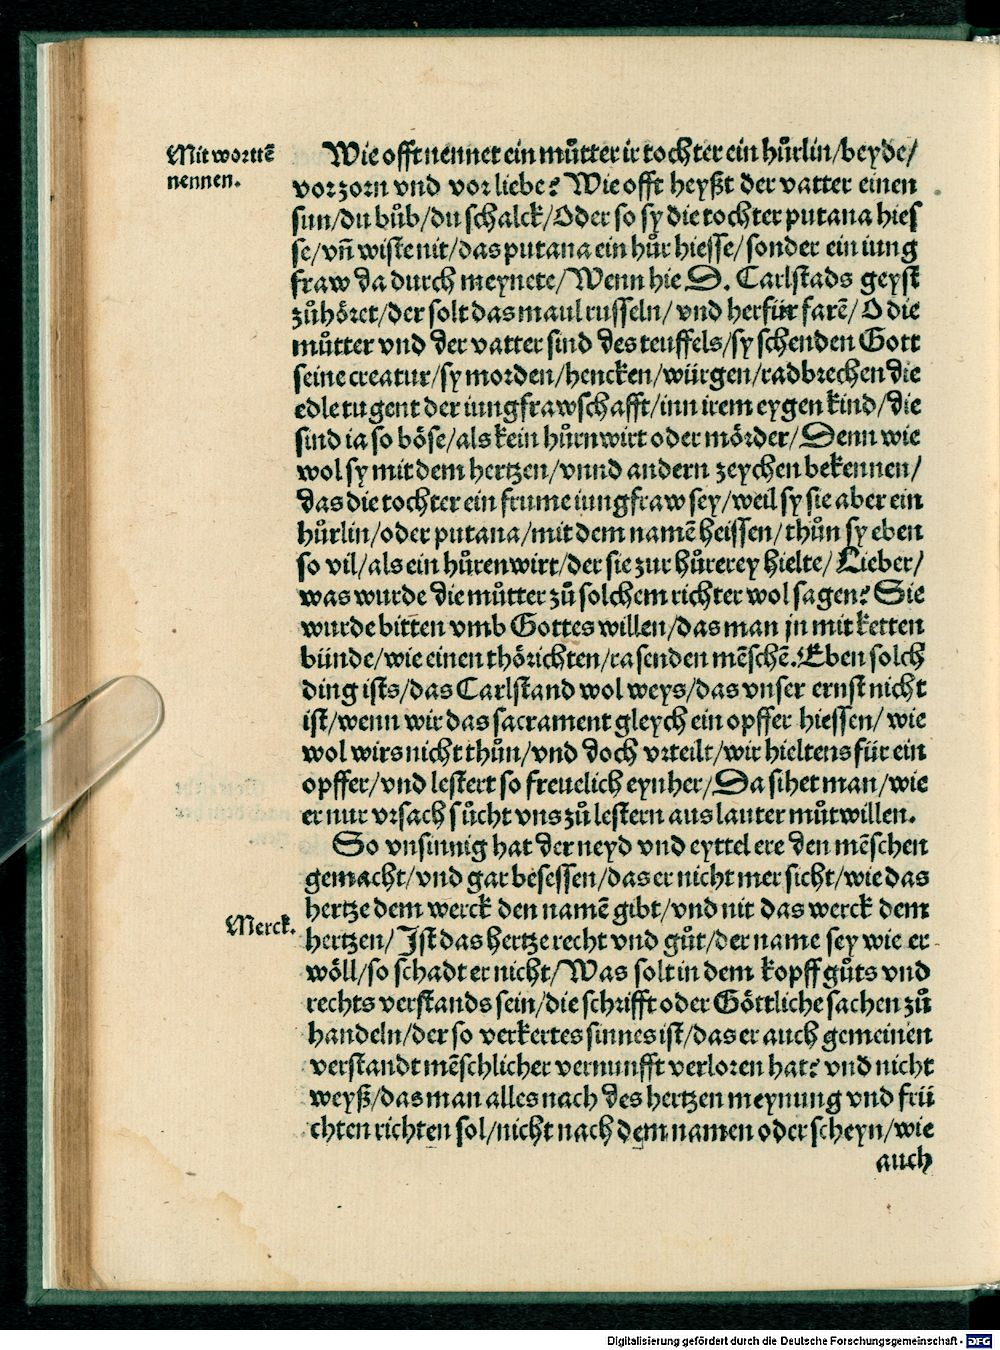 Mit worttē
nennen.
Wie offt nennet ein můtter ir tochter ein hůrlin/beyde/
vor zorn vnd vor liebe? Wie offt heyßt der vatter einen
sun/du bůb/du schalck/Oder so sy die tochter putana hies
se/vn̄ wiste nit/das putana ein hůr hiesse/sonder ein iung
fraw da durch meynete/Wenn hie D. Carlstads geyst
zůhöret/der solt das maul russeln/vnd herfür farē/O die
můtter vnd der vatter sind des teuffels/sy schenden Gott
seine creatur/sy morden/hencken/würgen/radbrechen die
edle tugent der iungfrawschafft/inn irem eygen kind/die
sind ia so böse/als kein hůrnwirt oder mörder/Denn wie
wol sy mit dem hertzen/vnnd andern zeychen bekennen/
das die tochter ein frume iungfraw sey/weil sy sie aber ein
hůrlin/oder putana/mit dem namē heissen/thůn sy eben
so vil/als ein hůrenwirt/der sie zur hůrerey hielte/Lieber/
was wurde die můtter zů solchem richter wol sagen? Sie
wurde bitten vmb Gottes willen/das man jn mit ketten
bünde/wie einen thörichten/rasenden mēschē. Eben solch
ding ists/das Carlstand wol weys/das vnser ernst nicht
ist/wenn wir das sacrament gleych ein opffer hiessen/wie
wol wirs nicht thůn/vnd doch vrteilt/wir hieltens für ein
opffer/vnd lestert so freuelich eynher/Da sihet man/wie
er nur vrsach sůcht vns zů lestern aus lauter můtwillen.
So vnsinnig hat der neyd vnd eyttel ere den mēschen
gemacht/vnd gar besessen/das er nicht mer sicht/wie das
hertze dem werck den namē gibt/vnd nit das werck dem
Merck.
hertzen/Ist das hertze recht vnd gůt/der name sey wie er
wöll/so schadt er nicht/Was solt in dem kopff gůts vnd
rechts verstands sein/die schrifft oder Göttliche sachen zů
handeln/der so verkertes sinnes ist/das er auch gemeinen
verstandt mēschlicher vernunfft verloren hat? vnd nicht
weyß/das man alles nach des hertzen meynung vnd frü
chten richten sol/nicht nach dem namen oder scheyn/wie
auch
Digitalisierung gefördert durch die Deutsche Forschungsgemeinschaft - DFG